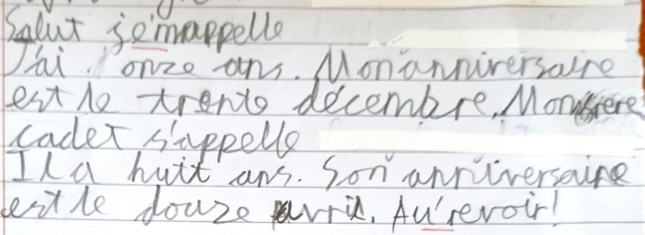 Salut je'mappelle
J'ai onze ans. Mon anniversaire
est le trente décembre. Mon frere
cadet s'appelle
Il a huit ans. Son anniversaire
est le douze avril. Au'revoir!